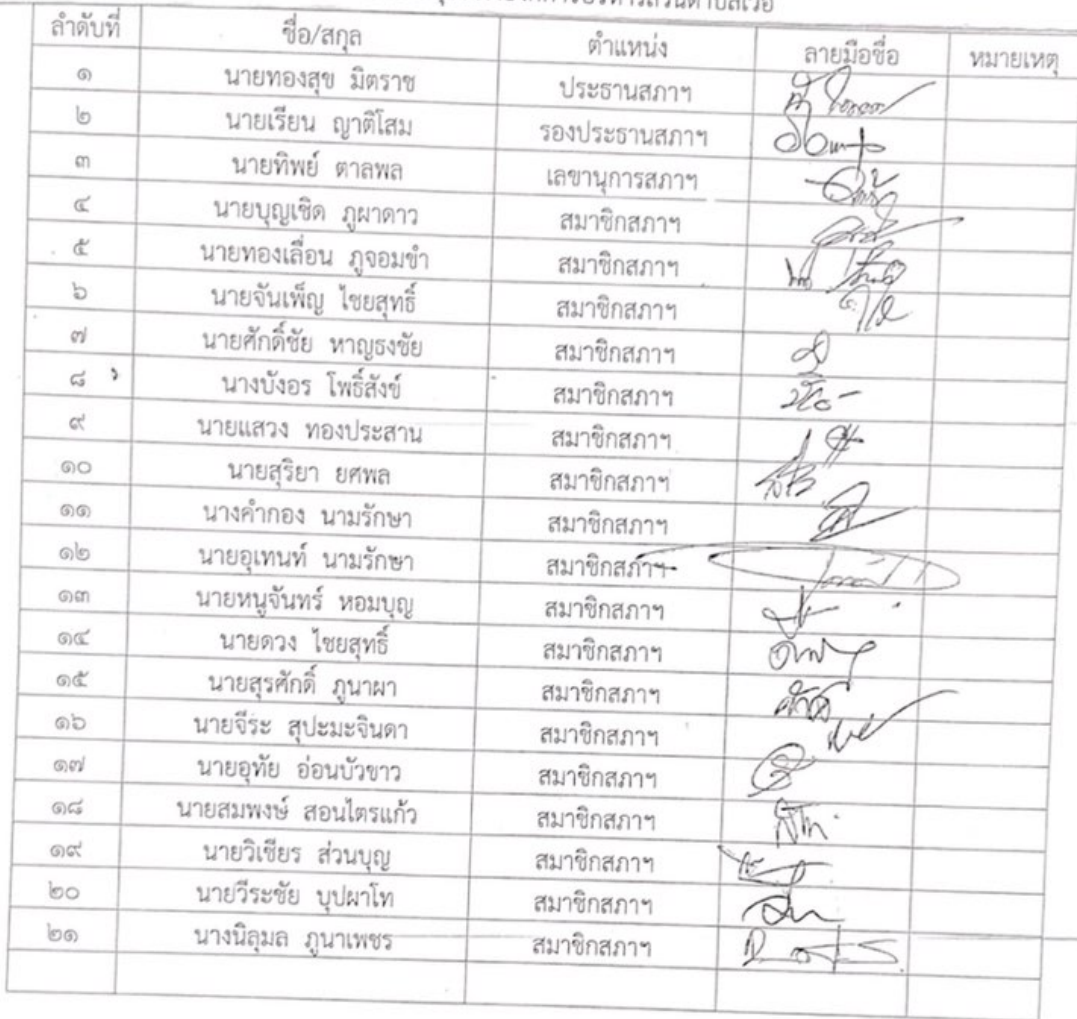 ลำดับที่ ชื่อ/สกุล ตำแหน่ง ลายมือชื่อ หมายเหตุ
๑ นายทองสุข มิตราช ประธานสภาฯ
๒ นายเรียน ญาติโสม รองประธานสภาฯ
๓ นายทิพย์ ตาลพล เลขานุการสภาฯ
๔ นายบุญเชิด ภูผาดาว สมาชิกสภาฯ
๕ นายทองเลื่อน ภูจอมขำ สมาชิกสภาฯ
๖ นายจันเพ็ญ ไชยสุทธิ์ สมาชิกสภาฯ
๗ นายศักดิ์ชัย หาญธงชัย สมาชิกสภาฯ
๘ นางบังอร โพธิ์สังข์ สมาชิกสภาฯ
๙ นายแสวง ทองประสาน สมาชิกสภาฯ
๑๐ นายสุริยา ยศพล สมาชิกสภาฯ
๑๑ นางคำกอง นามรักษา สมาชิกสภาฯ
๑๒ นายอุเทนท์ นามรักษา สมาชิกสภาฯ
๑๓ นายหนูจันทร์ หอมบุญ สมาชิกสภาฯ
๑๔ นายดวง ไชยสุทธิ์ สมาชิกสภาฯ
๑๕ นายสุรศักดิ์ ภูนาผา สมาชิกสภาฯ
๑๖ นายจีระ สุปะมะจินดา สมาชิกสภาฯ
๑๗ นายอุทัย อ่อนบัวขาว สมาชิกสภาฯ
๑๘ นายสมพงษ์ สอนไตรแก้ว สมาชิกสภาฯ
๑๙ นายวิเชียร ส่วนบุญ สมาชิกสภาฯ
๒๐ นายวีระชัย บุปผาโท สมาชิกสภาฯ
๒๑ นางนิลุมล ภูนาเพชร สมาชิกสภาฯ